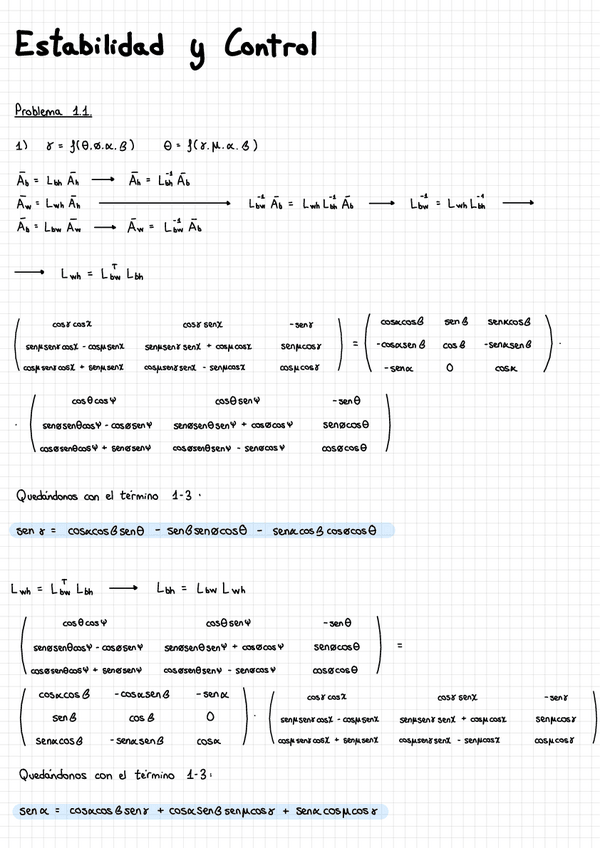 Estabilidad y Control
Problema 1.1.
1) γ = f(θ,ø,α,β) θ = f(γ,μ,α,β)
Āb = Lbh Āh → Āh = Lbh⁻¹ Āb
Āw = Lwh Āh → Lbw⁻¹ Āb = Lwh Lbh⁻¹ Āb → Lbw⁻¹ = Lwh Lbh⁻¹ →
Āb = Lbw Āw → Āw = Lbw⁻¹ Āb
→ Lwh = Lbwᵀ Lbh
cosγcosχ cosγsenχ -senγ
senμsenγcosχ - cosμsenχ senμsenγsenχ + cosμcosχ senμcosγ
cosμsenγcosχ + senμsenχ cosμsenγsenχ - senμcosχ cosμcosγ
=
cosαcosβ senβ senαcosβ
-cosαsenβ cosβ -senαsenβ
-senα 0 cosα
·
· cosθcosΨ cosθsenΨ -senθ
senøsenθcosΨ - cosøsenΨ senøsenθsenΨ + cosøcosΨ senøcosθ
cosøsenθcosΨ + senøsenΨ cosøsenθsenΨ - senøcosΨ cosøcosθ
Quedándonos con el término 1-3:
senγ = cosαcosβsenθ - senβsenøcosθ - senαcosβcosøcosθ
Lwh = Lbwᵀ Lbh → Lbh = Lbw Lwh
cosθcosΨ cosθsenΨ -senθ
senøsenθcosΨ - cosøsenΨ senøsenθsenΨ + cosøcosΨ senøcosθ
cosøsenθcosΨ + senøsenΨ cosøsenθsenΨ - senøcosΨ cosøcosθ
=
cosαcosβ -cosαsenβ -senα
senβ cosβ 0
senαcosβ -senαsenβ cosα
·
cosγcosχ cosγsenχ -senγ
senμsenγcosχ - cosμsenχ senμsenγsenχ + cosμcosχ senμcosγ
cosμsenγcosχ + senμsenχ cosμsenγsenχ - senμcosχ cosμcosγ
Quedándonos con el término 1-3:
senα = cosαcosβsenγ + cosαsenβsenμcosγ + senαcosμcosγ